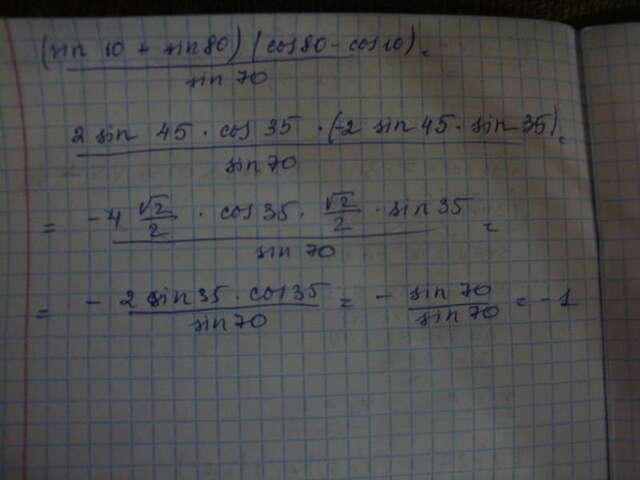 (sin 10 + sin 80) (cos 80 - cos 10) =
sin 70
2 sin 45 · cos 35 · (-2 sin 45 · sin 35) =
sin 70
= -4 √2/2 · cos 35 · √2/2 · sin 35 =
sin 70
= - 2 sin 35 · cos 35 / sin 70 = - sin 70 / sin 70 = -1